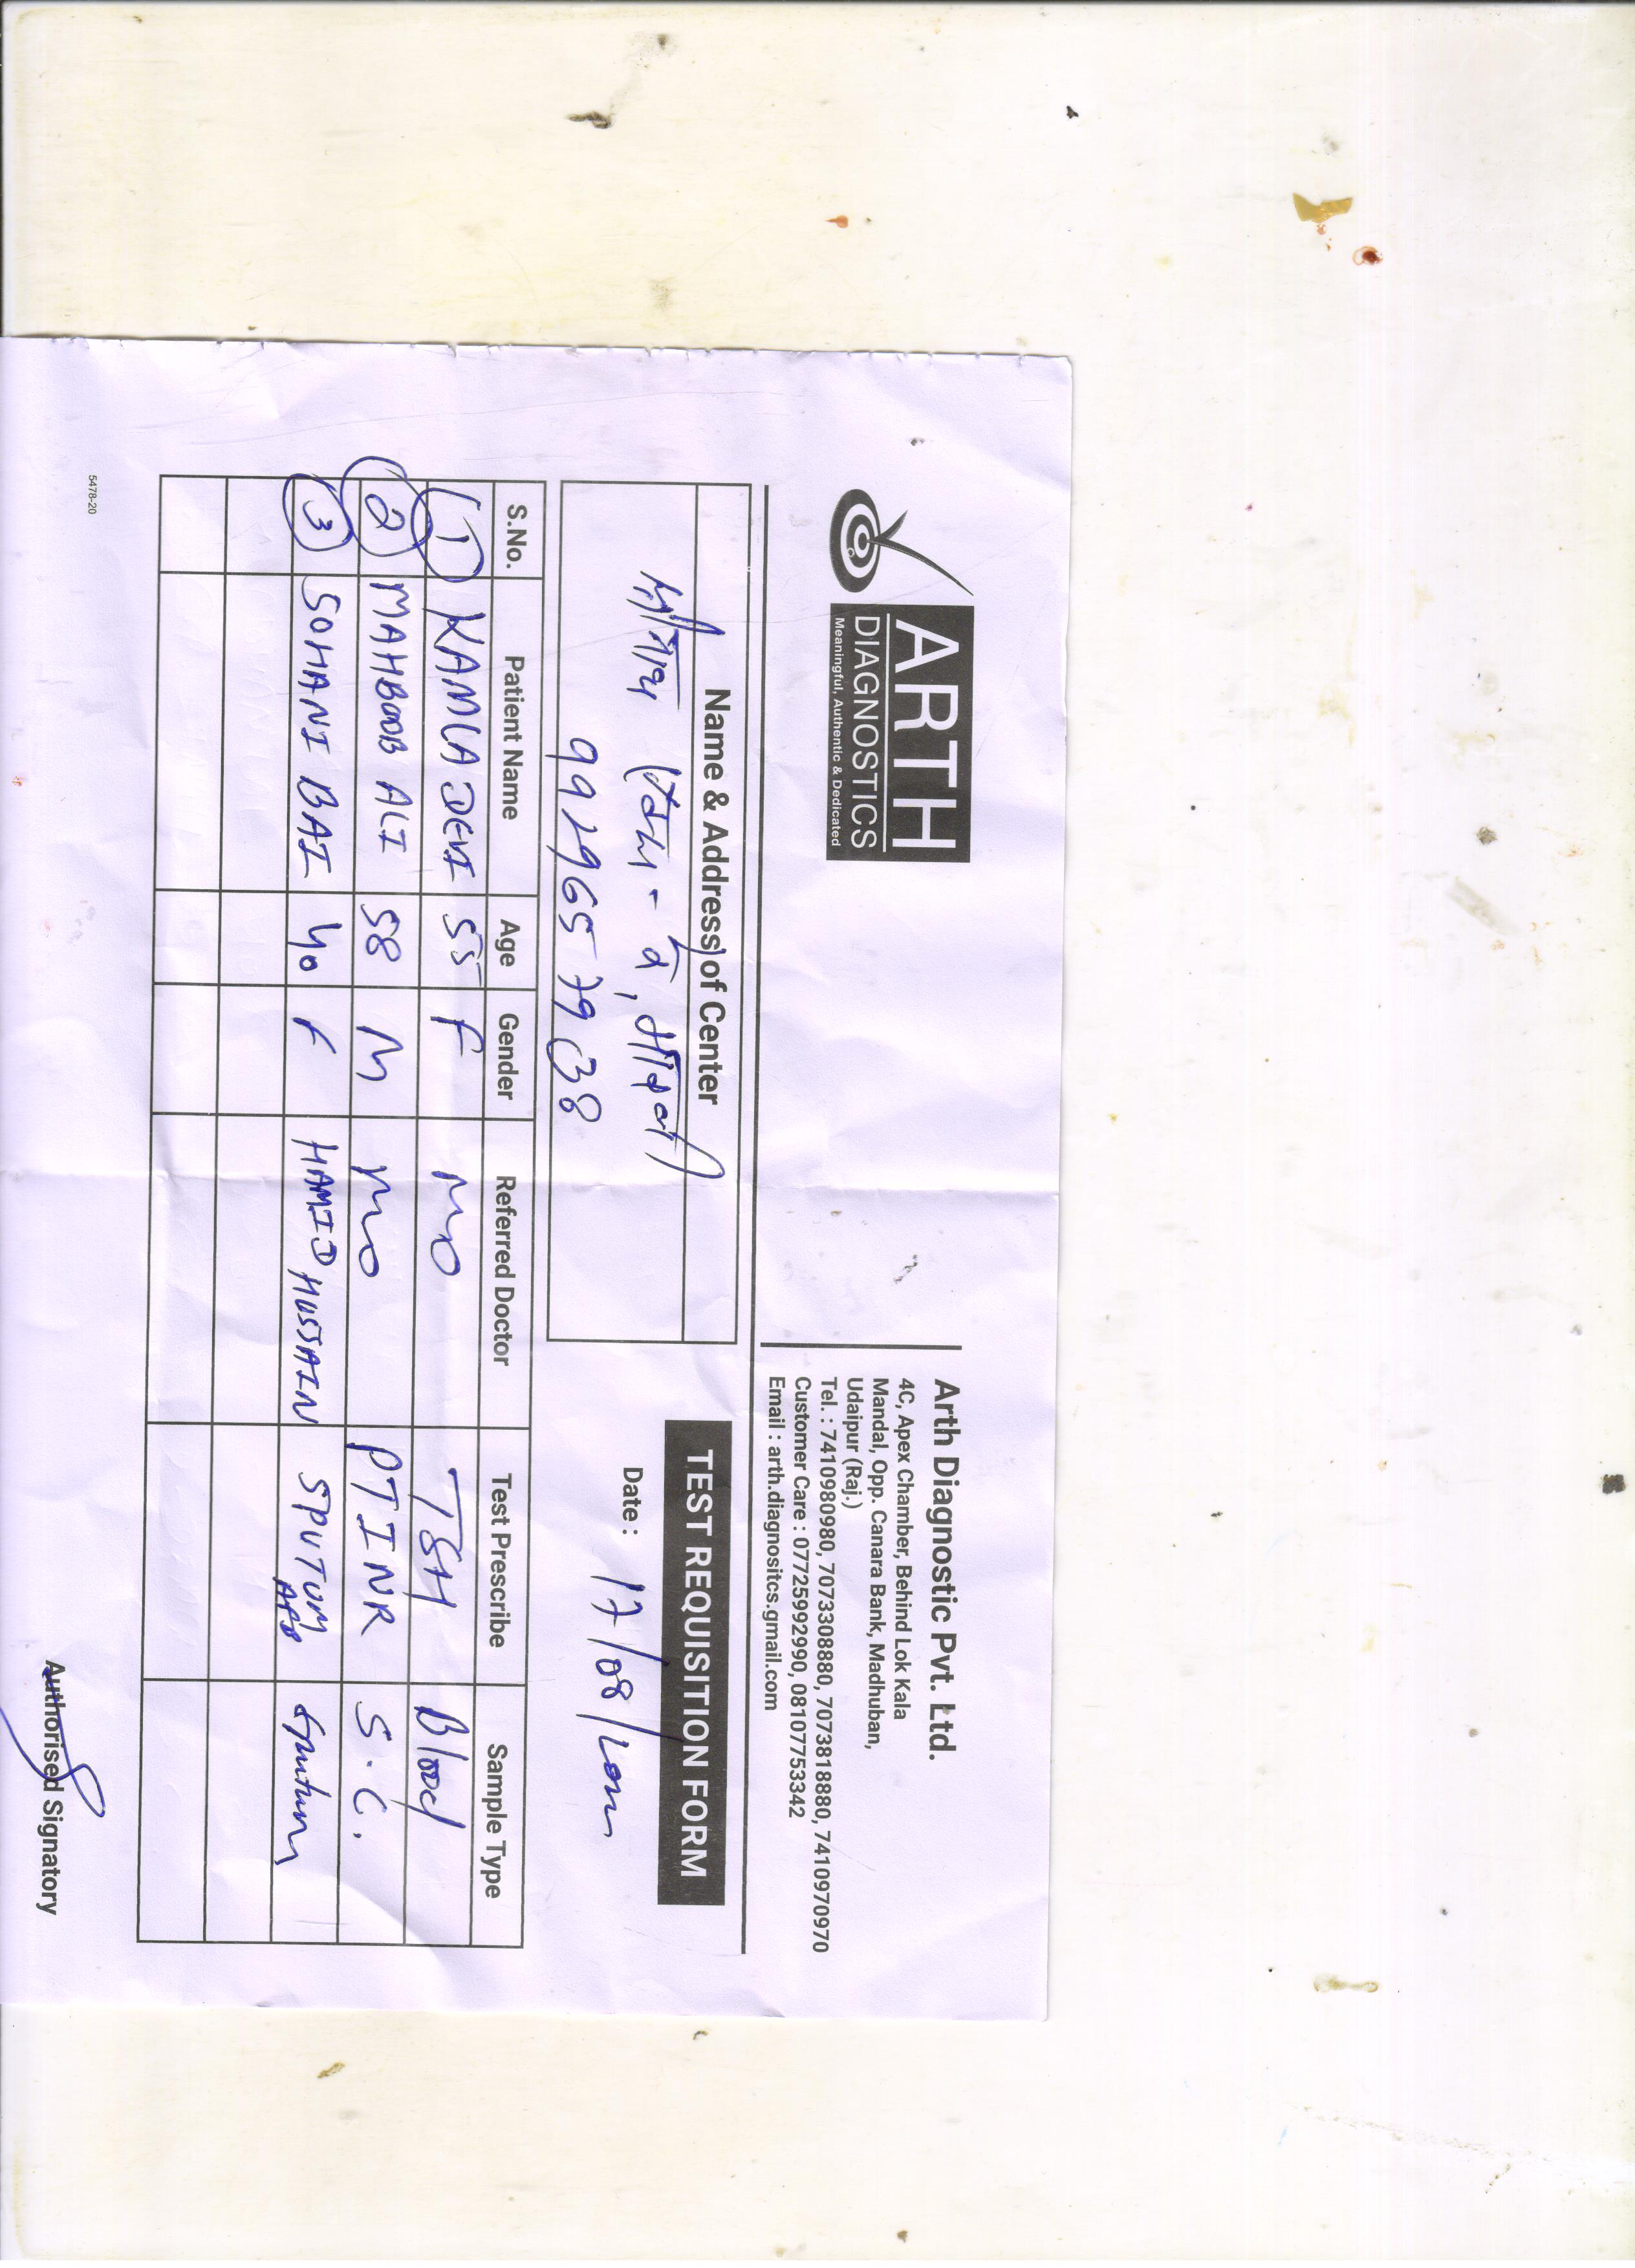 ARTH
DIAGNOSTICS
Meaningful, Authentic & Dedicated
Arth Diagnostic Pvt. Ltd.
4C, Apex Chamber, Behind Lok Kala
Mandal, Opp. Canara Bank, Madhuban,
Udaipur (Raj.)
Tel. : 7410980980, 7073308880, 7073818880, 7410970970
Customer Care : 07725992990, 08107753342
Email : arth.diagnositcs.gmail.com
Name & Address of Center
9929657938
TEST REQUISITION FORM
Date : 17/08/
S.No. Patient Name Age Gender Referred Doctor Test Prescribe Sample Type
1 KAMLA DEVI 55 F MO TSH Blood
2 MAHBOOB ALI 58 M MO PTINR S.C.
3 SOHANI BAI 40 F HAMID HUSSAIN SPUTUM AFB Sputum
5478-20
Authorised Signatory